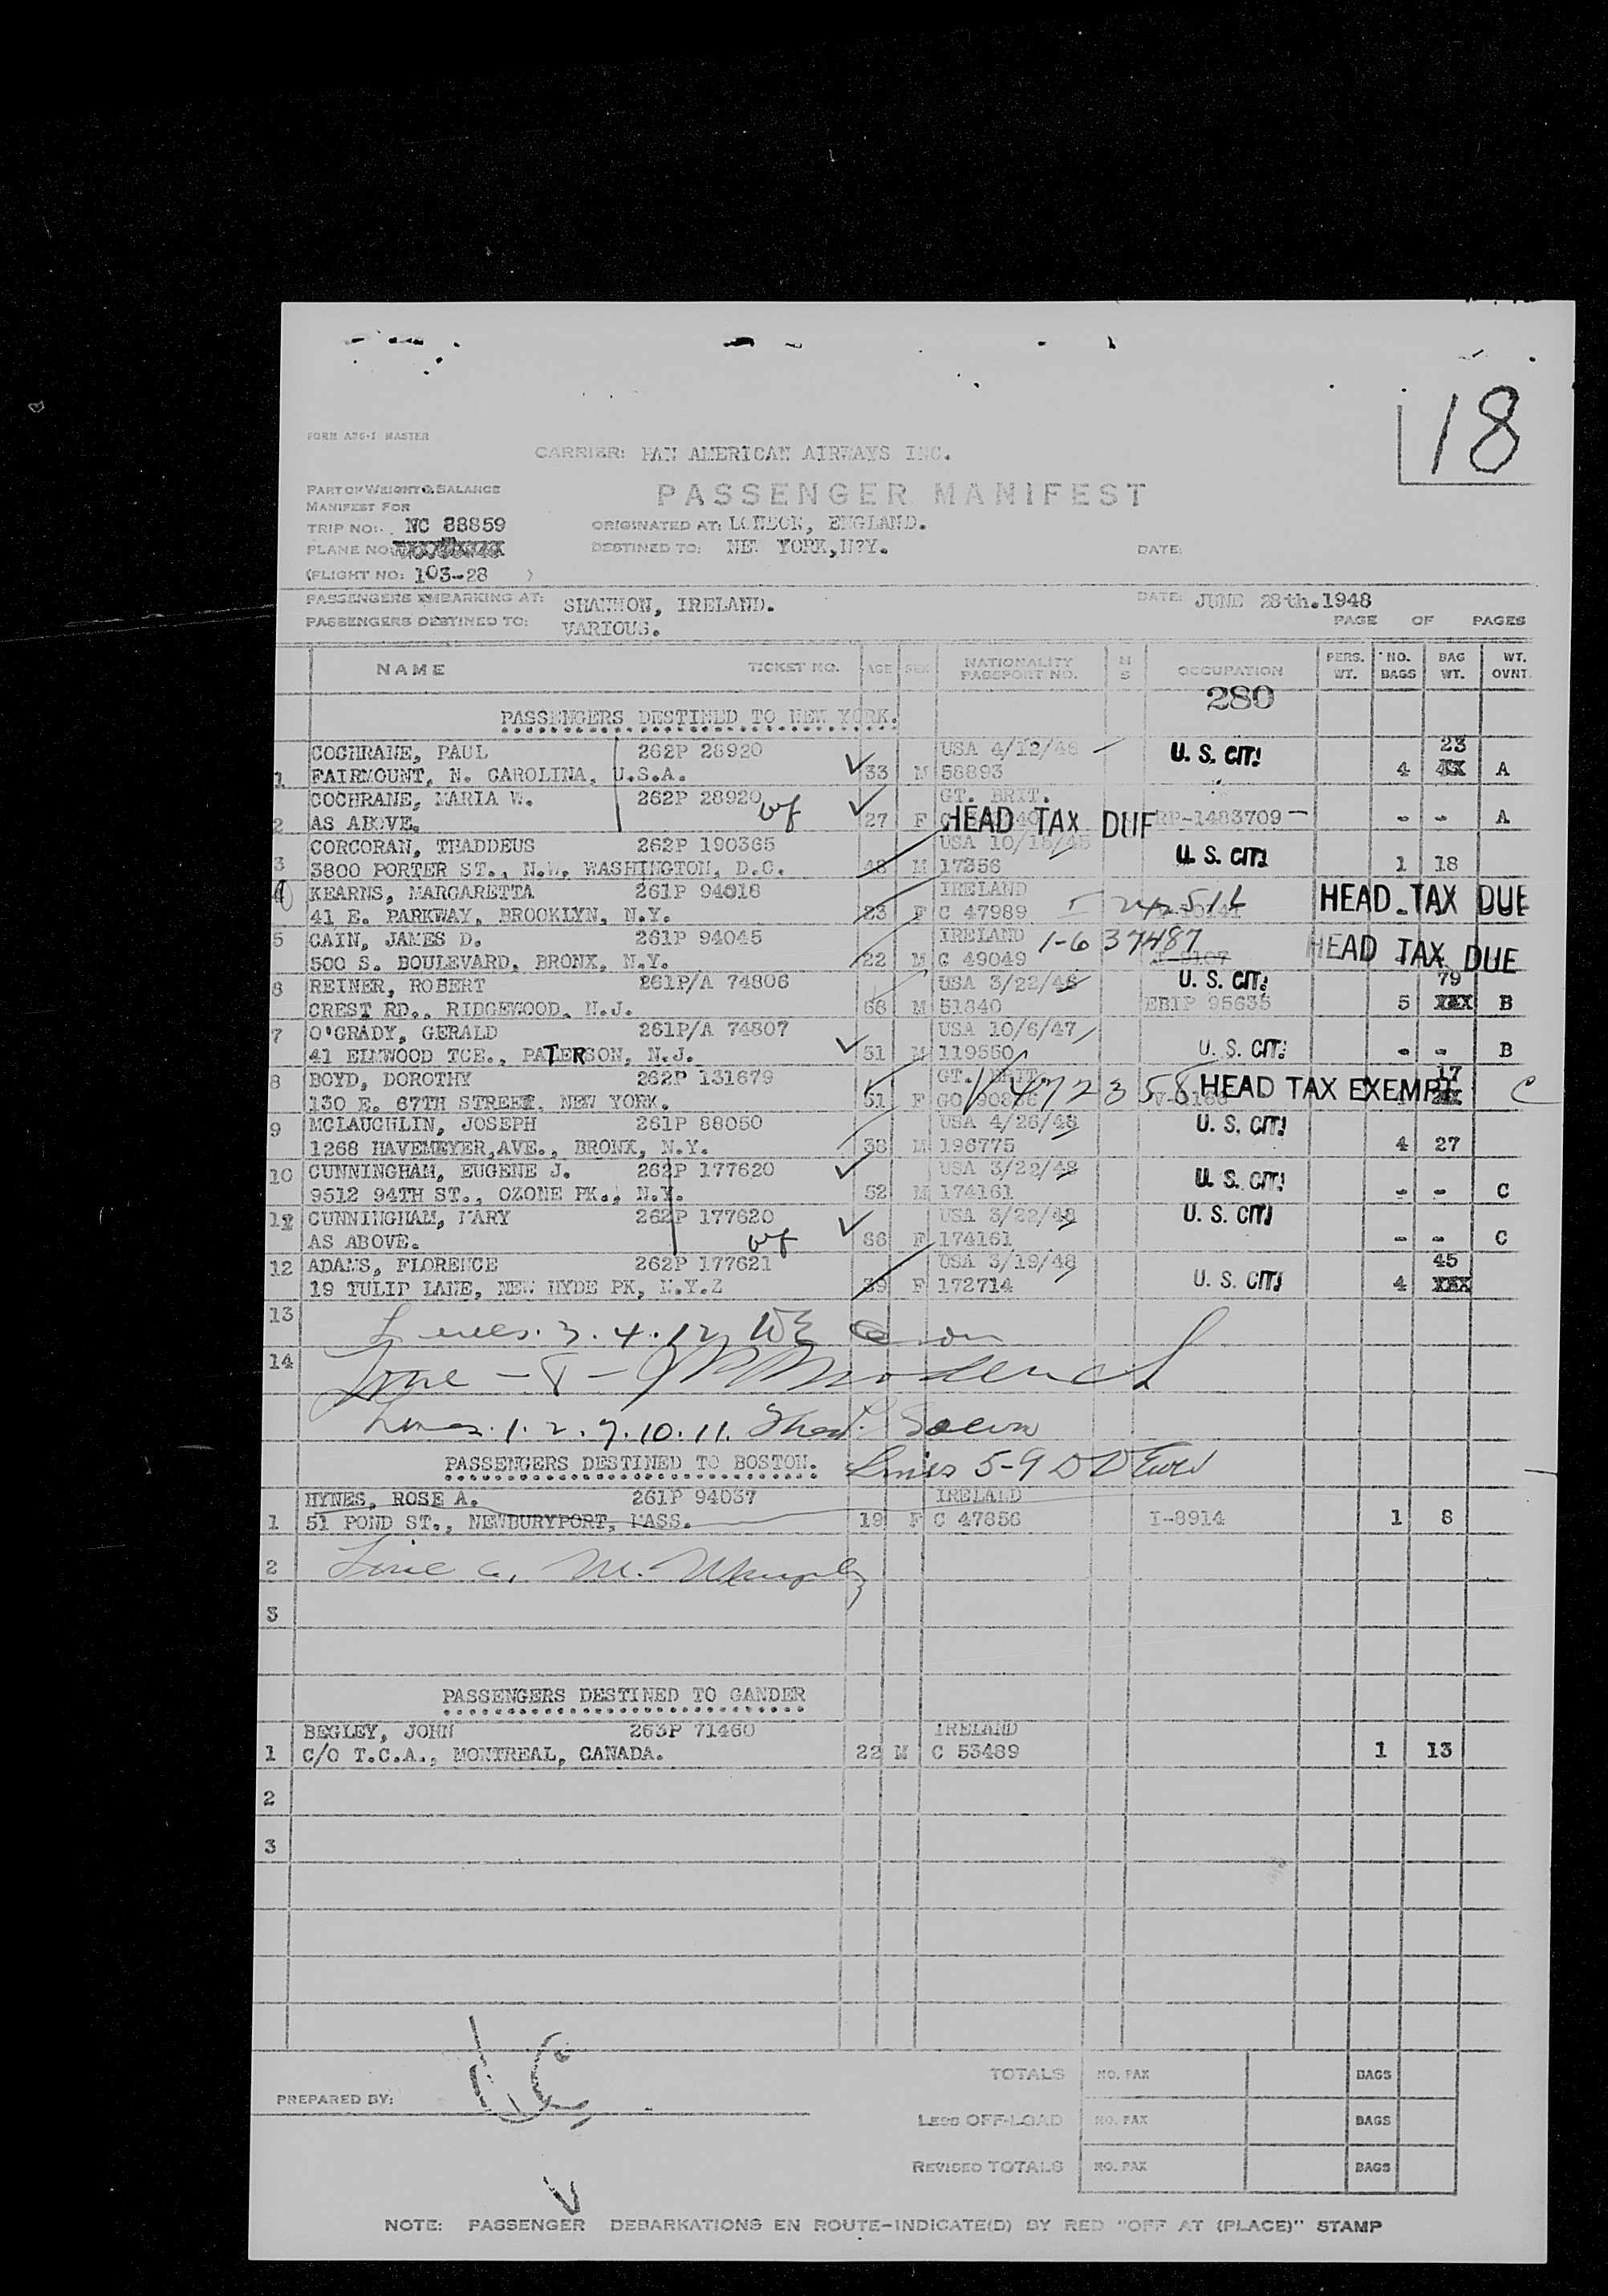 18
FORM ANG-1 MASTER
CARRIER: PAN AMERICAN AIRWAYS INC.
PART OF WEIGHT & BALANCE
MANIFEST FOR
PASSENGER MANIFEST
TRIP NO: NC 88859
ORIGINATED AT: LONDON, ENGLAND.
PLANE NO:
DESTINED TO: NEW YORK,N?Y.
DATE:
(FLIGHT NO: 103-28 )
PASSENGERS EMBARKING AT: SHANNON, IRELAND.
DATE: JUNE 28th.1948
PASSENGERS DESTINED TO: VARIOUS.
PAGE OF PAGES
NAME TICKET NO. AGE SEX NATIONALITY PASSPORT NO. M S OCCUPATION PERS. WT. NO. BAGS BAG WT. WT. OVNT.
280
PASSENGERS DESTINED TO NEW YORK.
COCHRANE, PAUL 262P 28920 USA 4/12/46 U. S. CIT. 23
1 FAIRMOUNT, N. CAROLINA, U.S.A. 33 M 58893 4 A
COCHRANE, MARIA W. 262P 28920 GT. BRIT.
2 AS ABOVE. wf 27 F HEAD TAX DUE RP-1483709 - - A
CORCORAN, THADDEUS 262P 190365 USA 10/15/45 U. S. CIT.
3 3800 PORTER ST., N.W. WASHINGTON, D.C. 48 M 17356 1 18
4 KEARNS, MARGARETTA 261P 94018 IRELAND HEAD TAX DUE
41 E. PARKWAY, BROOKLYN, N.Y. 23 F C 47989
5 CAIN, JAMES D. 261P 94045 IRELAND 1-637487 HEAD TAX DUE
500 S. BOULEVARD, BRONX, N.Y. 22 M C 49049
6 REINER, ROBERT 261P/A 74806 USA 3/22/46 U. S. CIT. 79
CREST RD., RIDGEWOOD, N.J. 56 M 51840 EBIP 95635 5 B
7 O'GRADY, GERALD 261P/A 74807 USA 10/6/47
41 ELMWOOD TCE., PATERSON, N.J. 31 M 119550 U. S. CIT. - - B
8 BOYD, DOROTHY 262P 131679 GT. BRIT. 17
130 E. 67TH STREET, NEW YORK. 51 F V 472358 HEAD TAX EXEMPT C
9 MCLAUGHLIN, JOSEPH 261P 88050 USA 4/26/48 U. S. CIT.
1268 HAVEMEYER,AVE., BRONX, N.Y. 38 M 196775 4 27
10 CUNNINGHAM, EUGENE J. 262P 177620 USA 3/22/48 U. S. CIT.
9512 94TH ST., OZONE PK., N.Y. 52 M 174161 - - C
11 CUNNINGHAM, MARY 262P 177620 USA 3/22/48 U. S. CIT.
AS ABOVE. wf 56 F 174161 - - C
12 ADAMS, FLORENCE 262P 177621 USA 3/19/48 45
19 TULIP LANE, NEW HYDE PK, N.Y.Z 39 F 172714 U. S. CIT. 4
13 Lines. 3. 4. 12
14 Line - 8 -
Lines. 1. 2. 7. 10. 11.
PASSENGERS DESTINED TO BOSTON. Lines 5-9
HYNES, ROSE A. 261P 94037 IRELALD
1 51 POND ST., NEWBURYPORT, MASS. 19 F C 47856 I-8914 1 8
2 Line 6, M. Murphy
3
PASSENGERS DESTINED TO GANDER
BEGLEY, JOHN 263P 71460 IRELAND
1 C/O T.C.A., MONTREAL, CANADA. 22 M C 53489 1 13
2
3
TOTALS NO. PAX BAGS
PREPARED BY:
LESS OFF-LOAD NO. PAX BAGS
REVISED TOTALS NO. PAX BAGS
NOTE: PASSENGER DEBARKATIONS EN ROUTE-INDICATE(D) BY RED "OFF AT (PLACE)" STAMP